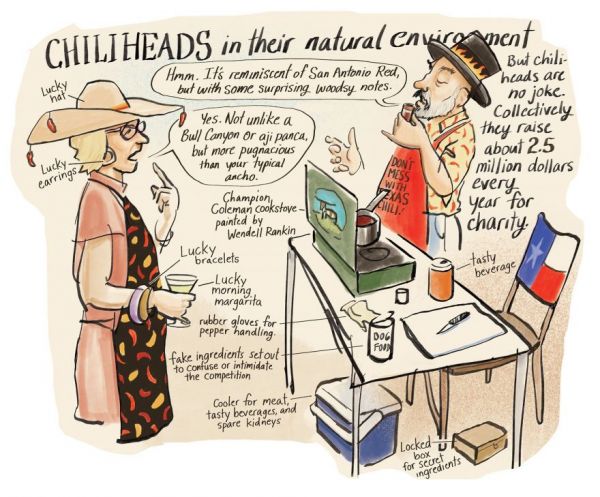 CHILIHEADS in their natural environment
Hmm. It's reminiscent of San Antonio Red,
but with some surprising woodsy notes.
But chili-
heads are
no joke.
Collectively
they raise
about 2.5
million dollars
every
year for
charity.
Lucky
hat
Yes. Not unlike a
Bull Canyon or aji panca,
but more pugnacious
than your typical
ancho.
Lucky
earrings
DON'T
MESS
WITH
TEXAS
CHILI!
Champion
Coleman cookstove
painted by
Wendell Rankin
Lucky
bracelets
Lucky
morning
margarita
tasty
beverage
rubber gloves for
pepper handling.
DOG
FOOD
fake ingredients set out
to confuse or intimidate
the competition
Cooler for meat,
tasty beverages, and
spare kidneys
Locked
box
for secret
ingredients